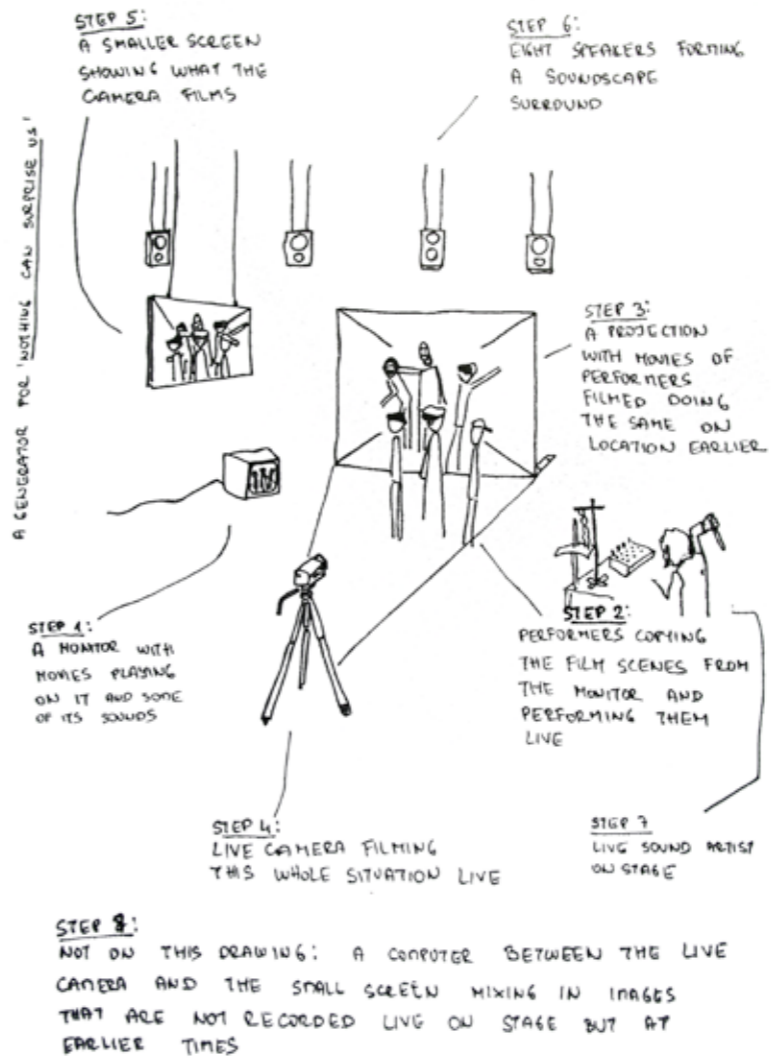 STEP 5:
A SMALLER SCREEN
SHOWING WHAT THE
CAMERA FILMS
STEP 6:
EIGHT SPEAKERS FORMING
A SOUNDSCAPE
SURROUND
A GENERATOR FOR 'NOTHING CAN SURPRISE US'
STEP 3:
A PROJECTION
WITH MOVIES OF
PERFORMERS
FILMED DOING
THE SAME ON
LOCATION EARLIER
STEP 1:
A MONITOR WITH
MOVIES PLAYING
ON IT AND SOME
OF ITS SOUNDS
STEP 2:
PERFORMERS COPYING
THE FILM SCENES FROM
THE MONITOR AND
PERFORMING THEM
LIVE
STEP 4:
LIVE CAMERA FILMING
THIS WHOLE SITUATION LIVE
STEP 7
LIVE SOUND ARTIST
ON STAGE
STEP 8:
NOT ON THIS DRAWING: A COMPUTER BETWEEN THE LIVE
CAMERA AND THE SMALL SCREEN MIXING IN IMAGES
THAT ARE NOT RECORDED LIVE ON STAGE BUT AT
EARLIER TIMES